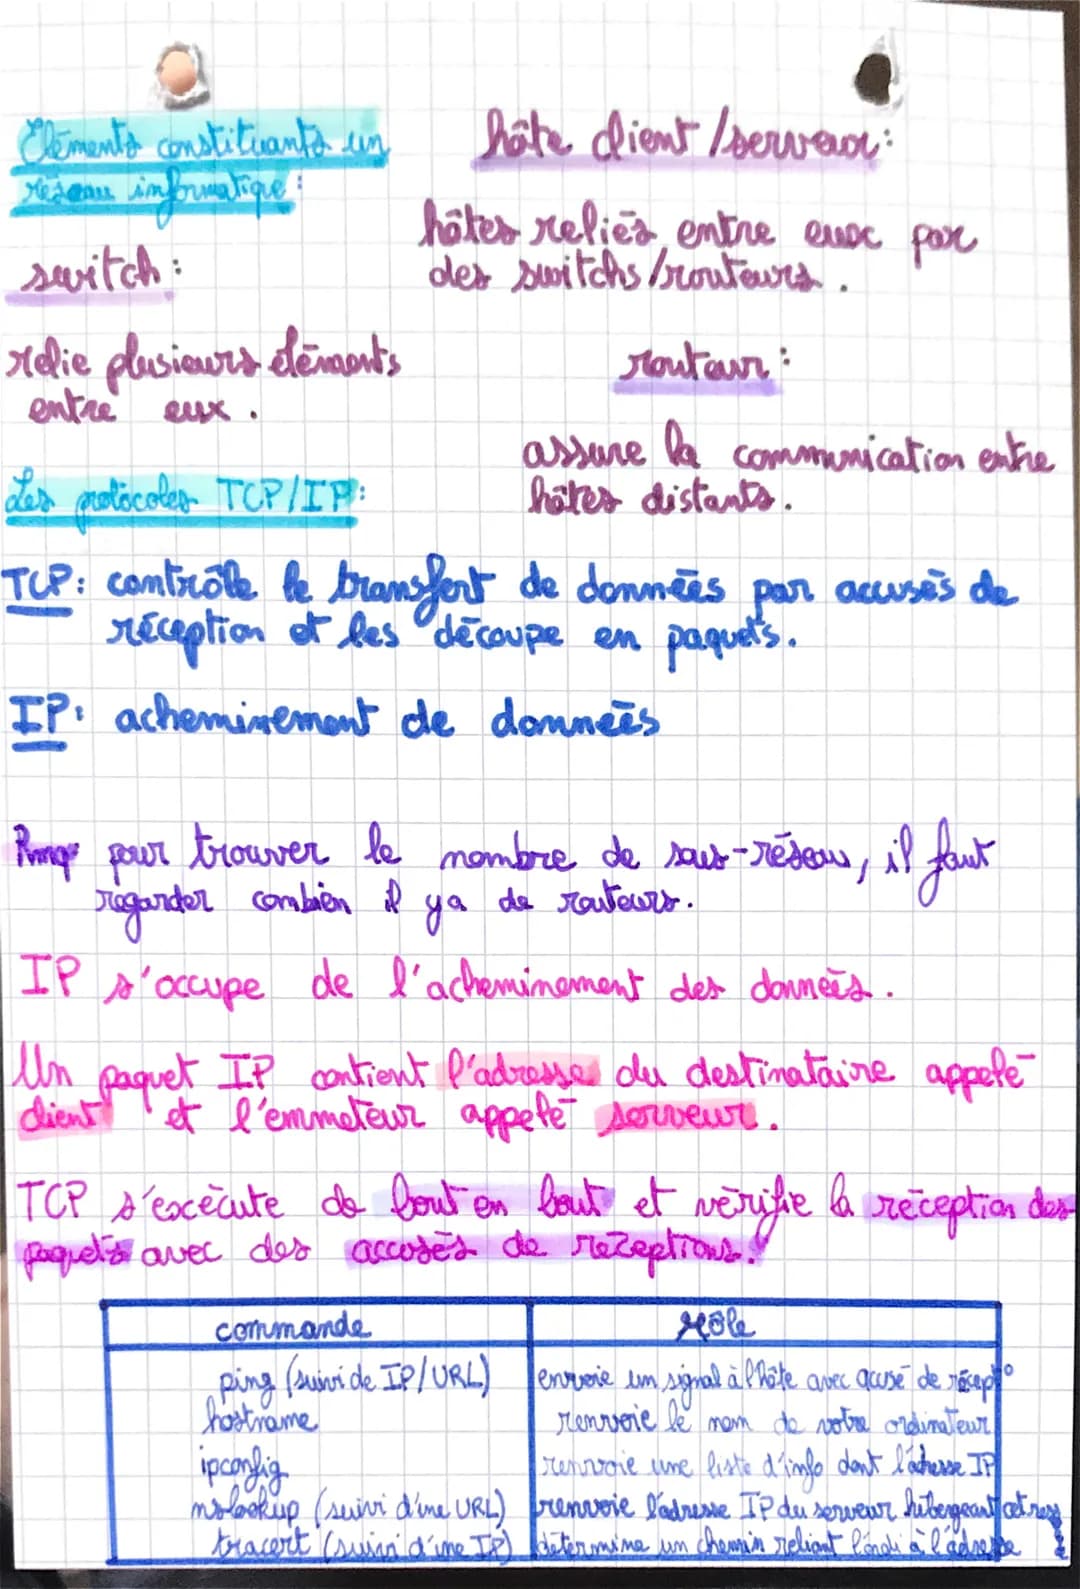 Eléments constituants un
réseau informatique :
switch :
relie plusieurs éléments
entre eux .
hôte client /serveur :
hôtes reliés entre eux par
des switchs /routeurs .
routeur :
assure la communication entre
hôtes distants .
Les protocoles TCP/IP :
TCP : contrôle le transfert de données par accusés de
réception et les découpe en paquets .
IP : acheminement de données
pour trouver le nombre de sous-réseau, il faut
regarder combien il y a de routeurs .
IP s'occupe de l'acheminement des données .
Un paquet IP contient l'adresse du destinataire appelé
client et l'emmeteur appelé serveur .
TCP s'exécute de bout en bout et vérifie la réception des
paquets avec des accusés de réceptions .
commande rôle
ping (suivi de IP/URL) envoie un signal à l'hôte avec accusé de récept°
hostname renvoie le nom de votre ordinateur
ipconfig renvoie une liste d'info dont l'adresse IP
nslookup (suivi d'une URL) renvoie l'adresse IP du serveur hébergeant cet
tracert (suivi d'une IP) détermine un chemin reliant l'ordi à l'adresse